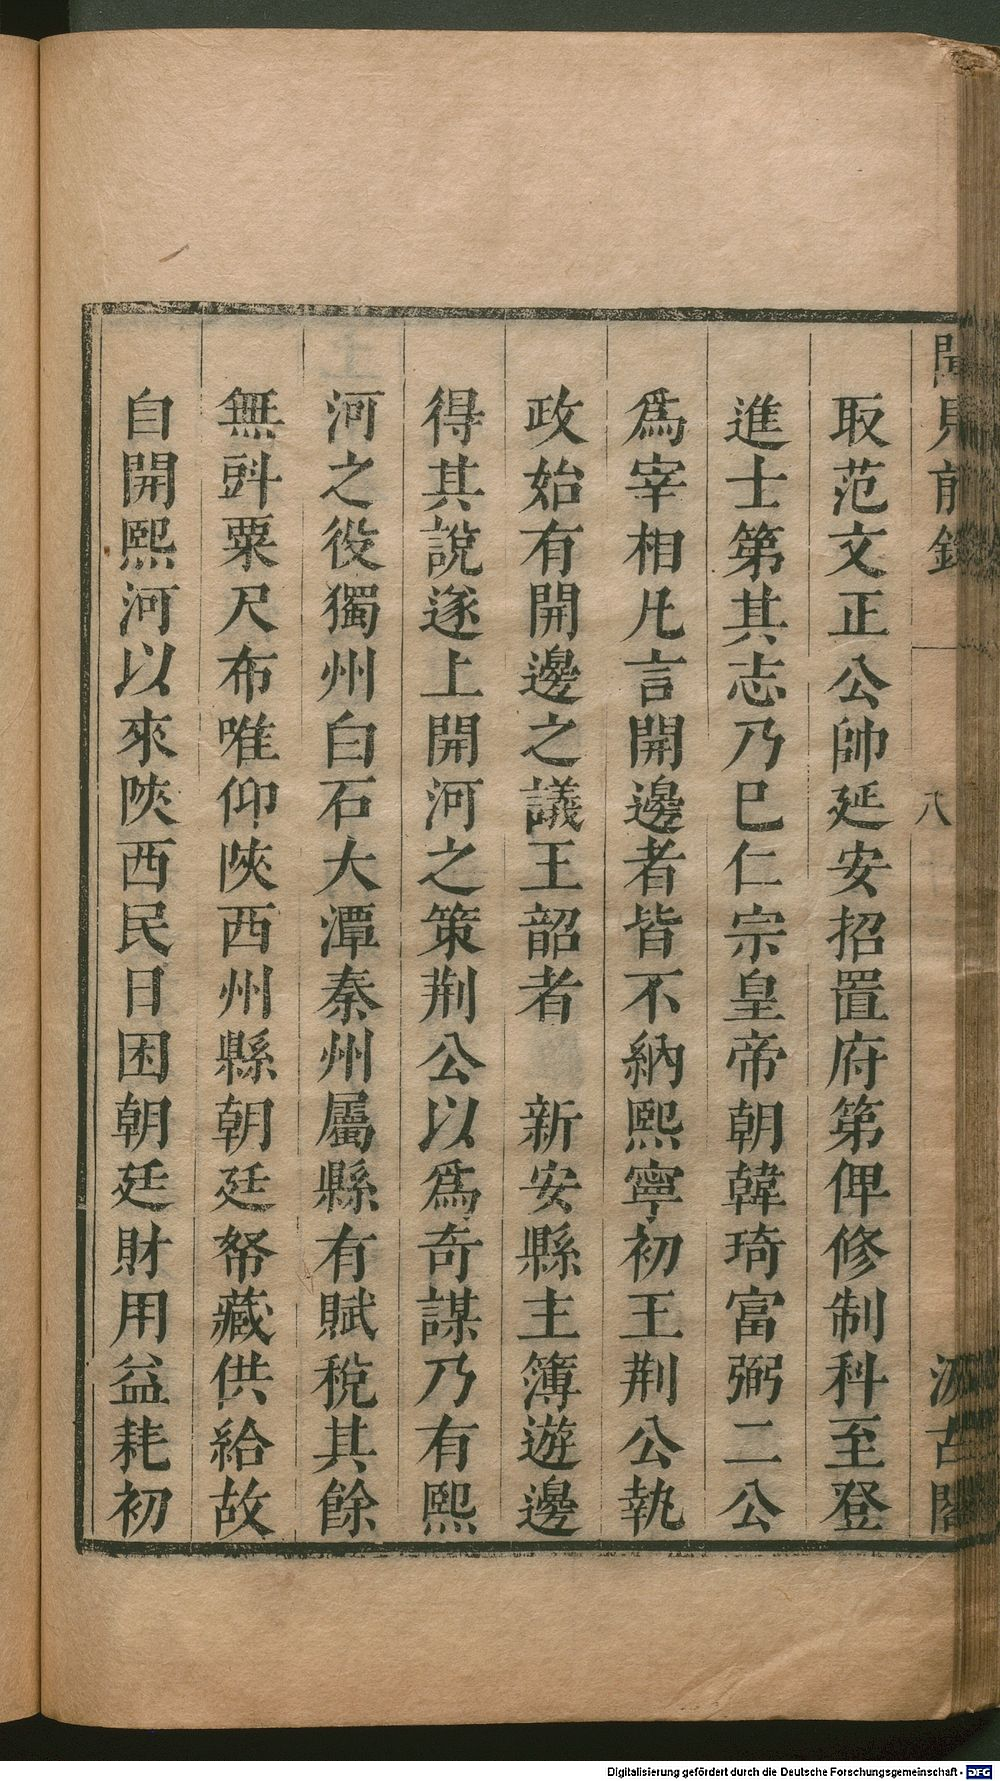 聞見前錄
八
汲古閣
取范文正公帥延安招置府第俾修制科至登
進士第其志乃已仁宗皇帝朝韓琦富弼二公
爲宰相凡言開邊者皆不納熙寧初王荆公執
政始有開邊之議王韶者　新安縣主簿遊邊
得其說遂上開河之策荆公以爲奇謀乃有熙
河之役獨州白石大潭秦州屬縣有賦稅其餘
無㪷粟尺布唯仰陜西州縣朝廷帑藏供給故
自開熙河以來陜西民日困朝廷財用益耗初
Digitalisierung gefördert durch die Deutsche Forschungsgemeinschaft - DFG